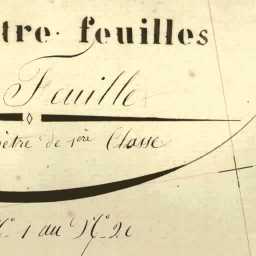 tre feuilles
Feuille
ètre de 1ère Classe
N.° 1 au N.° 20